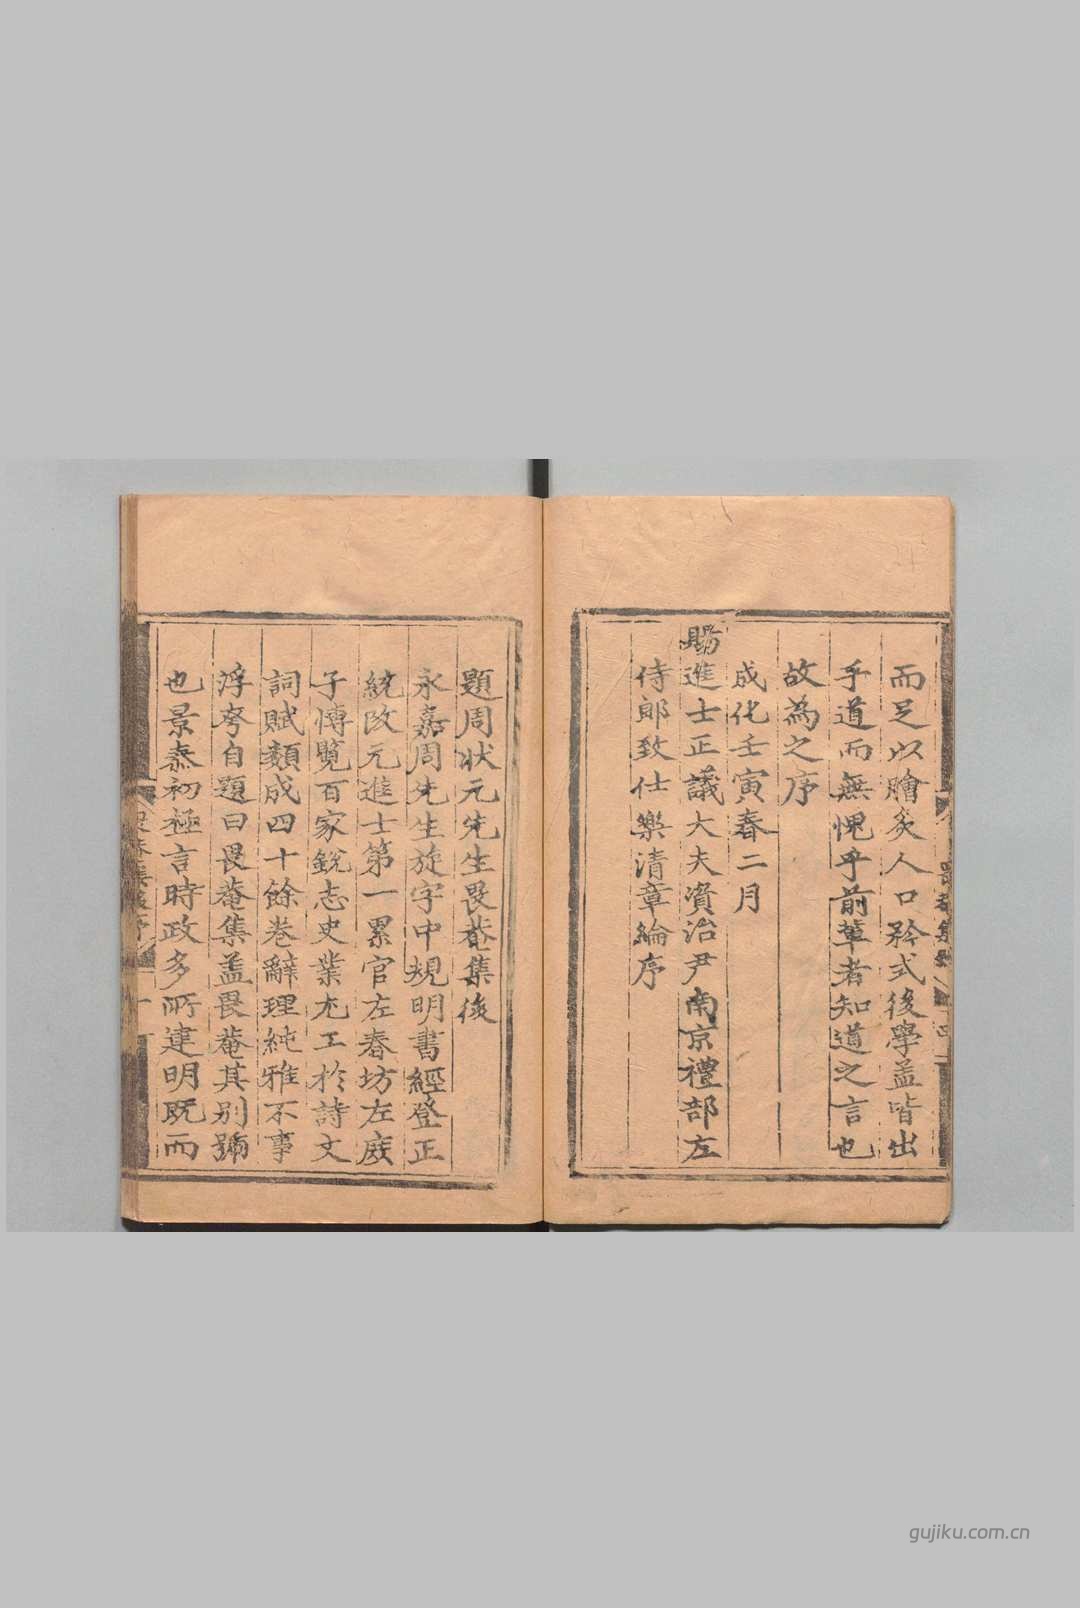 而足以膾炙人口矜式後學盖皆出
乎道而無愧乎前輩者知道之言也
故為之序
成化壬寅春二月
賜進士正議大夫資治尹南京禮部左
侍郎致仕樂清章綸序
題周狀元先生畏菴集後
永嘉周先生旋字中規明書經登正
統改元進士第一累官左春坊左庶
子博覽百家銳志史業尤工於詩文
詞賦類成四十餘卷辭理純雅不事
浮夸自題曰畏菴集盖畏菴其别號
也景泰初極言時政多所建明既而
gujiku.com.cn